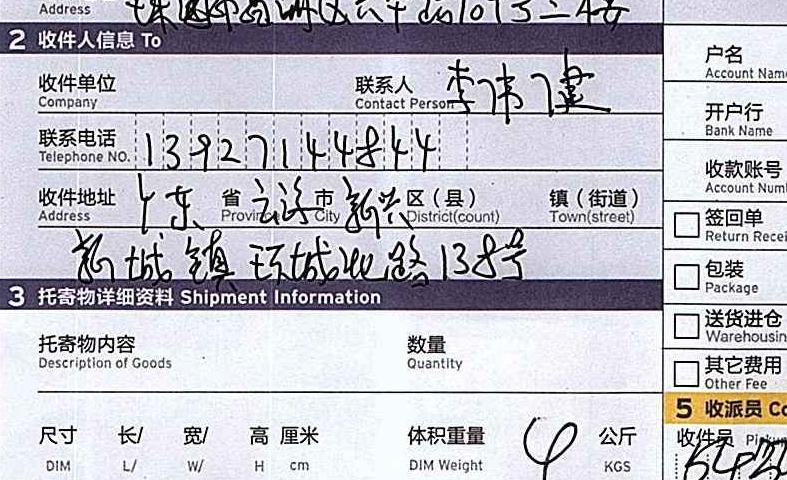 Address
2 收件人信息 To
收件单位 Company
联系人 Contact Person 李伟健
联系电话 Telephone NO. 13927144844
收件地址 Address 广东 省 Province 云浮 市 City 新兴 区(县) District(count) 镇(街道) Town(street)
新城镇环城北路138号
3 托寄物详细资料 Shipment Information
托寄物内容 Description of Goods
数量 Quantity
尺寸 DIM 长/ L/ 宽/ W/ 高 H 厘米 cm
体积重量 DIM Weight 公斤 KGS
户名
Account Name
开户行
Bank Name
收款账号
Account Num
签回单
Return Recei
包装
Package
送货进仓
Warehousin
其它费用
Other Fee
5 收派员 Co
收件员